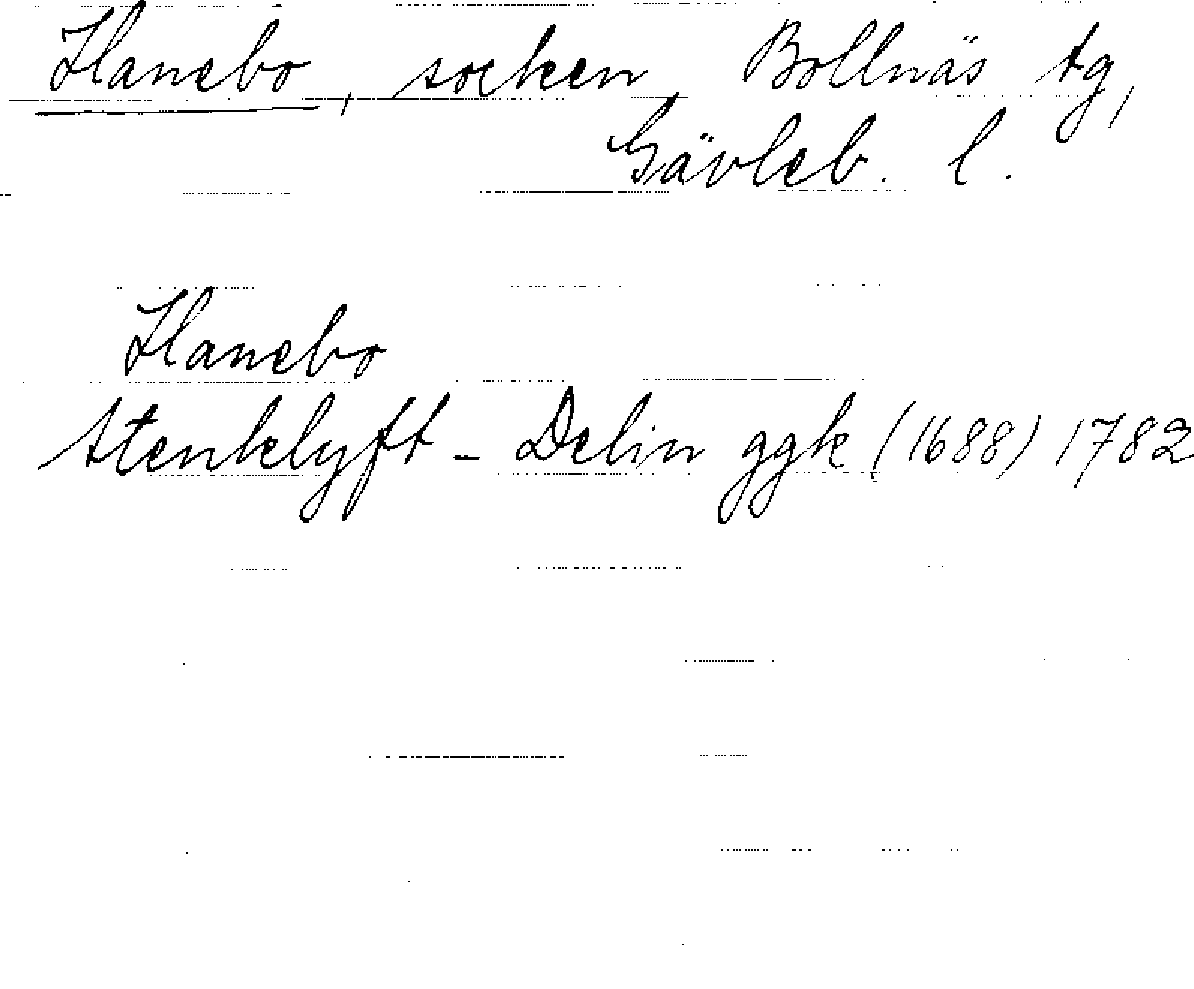 Hanebo, socken, Bollnäs tg,
Gävleb. l.
Hanebo
Stenklyft - Delin ggk (1688) 1782